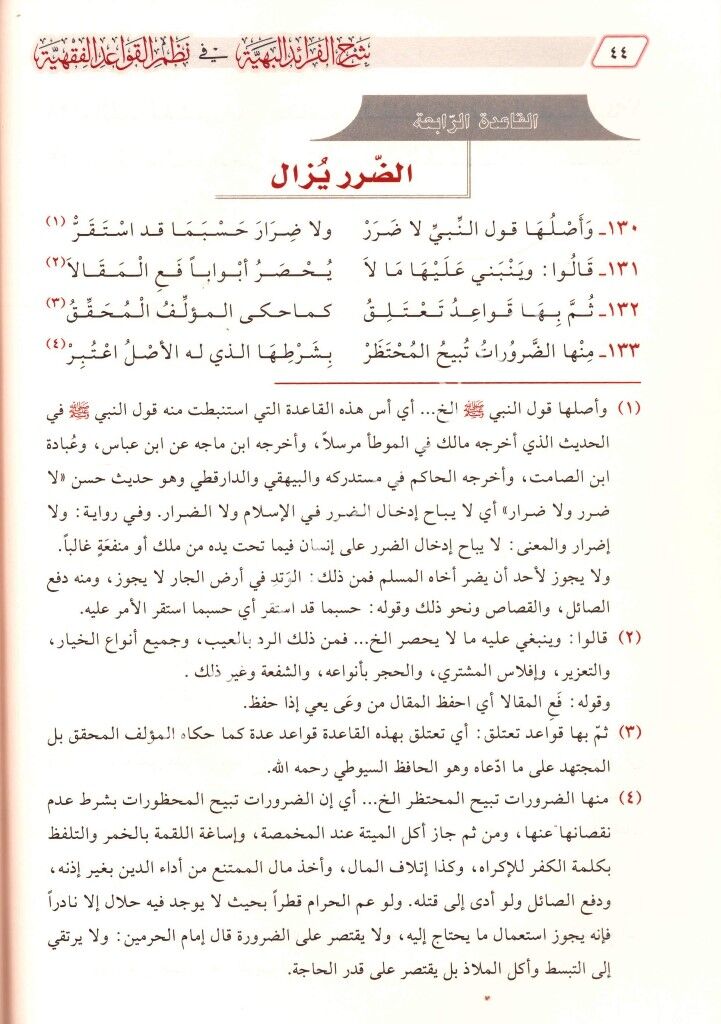 ٤٤
شرح الفرائد البهية في نظم القواعد الفقهية
القاعدة الرّابعة
الضّرر يُزال
١٣٠ـ وَأَصْلُهَا قول النَّبيِّ لا ضَرَرَْ ولا ضِرَارَ حَسْبَمَا قد اسْتَقَرّْ (١)
١٣١ـ قَالُوا: وَيَنْبَني عَلَيْهَا مَا لاَ يُحْصَرُ أبْواباً فَعِ الْمَقَالاَ (٢)
١٣٢ـ ثُمَّ بِهَا قَواعِدُ تَعْتَلِقُ كما حكى المؤلِّفُ الْمُحَقِّقُ (٣)
١٣٣ـ مِنْها الضَّرُوراتُ، تُبيحُ المُحْتَظَرْ بِشَرْطِهَا الذي له الأصْلُ اعْتُبِرْ (٤)
(١) وأصلها قول النبي ﷺ الخ... أي أس هذه القاعدة التي استنبطت منه قول النبي ﷺ في
الحديث الذي أخرجه مالك في الموطأ مرسلاً، وأخرجه ابن ماجه عن ابن عباس، وعُبادة
ابن الصامت، وأخرجه الحاكم في مستدركه والبيهقي والدارقطي وهو حديث حسن «لا
ضرر ولا ضرار» أي لا يباح إدخال الضرر في الإسلام ولا الضرار. وفي رواية: ولا
إضرار والمعنى: لا يباح إدخال الضرر على إنسان فيما تحت يده من ملك أو منفعَةٍ غالباً.
ولا يجوز لأحد أن يضر أخاه المسلم فمن ذلك: الوَتدِ في أرض الجار لا يجوز، ومنه دفع
الصائل، والقصاص ونحو ذلك وقوله: حسبما قد استقر أي حسبما استقر الأمر عليه.
(٢) قالوا: وينبغي عليه ما لا يحصر الخ... فمن ذلك الرد بالعيب، وجميع أنواع الخيار،
والتعزير، وإفلاس المشتري، والحجر بأنواعه، والشفعة وغير ذلك.
وقوله: فَعِ المقالا أي احفظ المقال من وعَى يعي إذا حفظ.
(٣) ثمّ بها قواعد تعتلق: أي تعتلق بهذه القاعدة قواعد عدة كما حكاه المؤلف المحقق بل
المجتهد على ما ادّعاه وهو الحافظ السيوطي رحمه الله.
(٤) منها الضرورات تبيح المحتظر الخ... أي إن الضرورات تبيح المحظورات بشرط عدم
نقصانها عنها، ومن ثم جاز أكل الميتة عند المخمصة، وإساغة اللقمة بالخمر والتلفظ
بكلمة الكفر للإكراه، وكذا إتلاف المال، وأخذ مال الممتنع من أداء الدين بغير إذنه،
ودفع الصائل ولو أدى إلى قتله. ولو عم الحرام قطراً بحيث لا يوجد فيه حلال إلا نادراً
فإنه يجوز استعمال ما يحتاج إليه، ولا يقتصر على الضرورة قال إمام الحرمين: ولا يرتقي
إلى التبسط وأكل الملاذ بل يقتصر على قدر الحاجة.